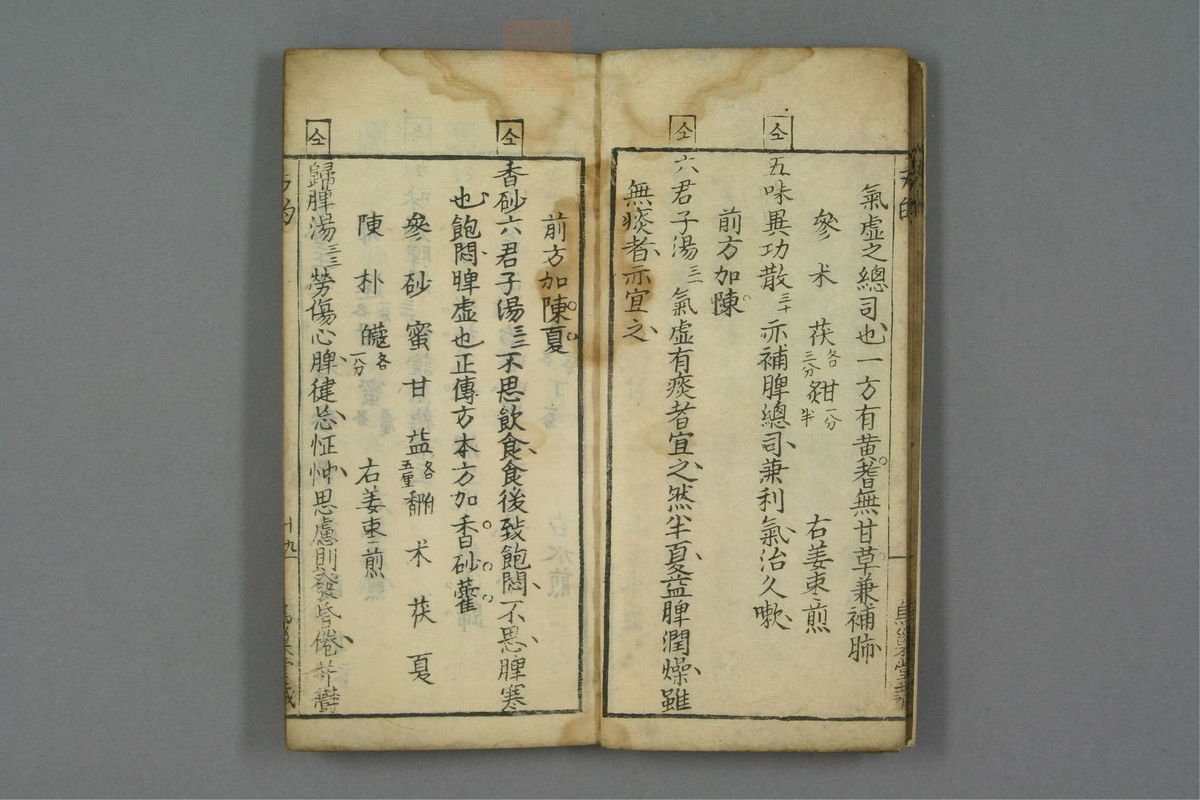 氣虛之總司也一方有黄耆無甘草兼補肺
參 术 茯各三分 甜一分半 右姜東煎
五味異功散三十 亦補脾總司兼利氣治久嗽
前方加陳
六君子湯三一 氣虛有痰者宜之然半夏益脾潤燥雖
無痰者亦宜之
前方加陳夏
香砂六君子湯三二 不思飲食食後致飽悶不思脾寒
也飽悶脾虛也正傳方本方加香砂藿
參 砂 蜜 甘 益各五厘 术 茯 夏
陳 朴 各一分 右姜東煎
歸脾湯三三 勞傷心脾健忘怔忡思慮則發昏倦并鬱